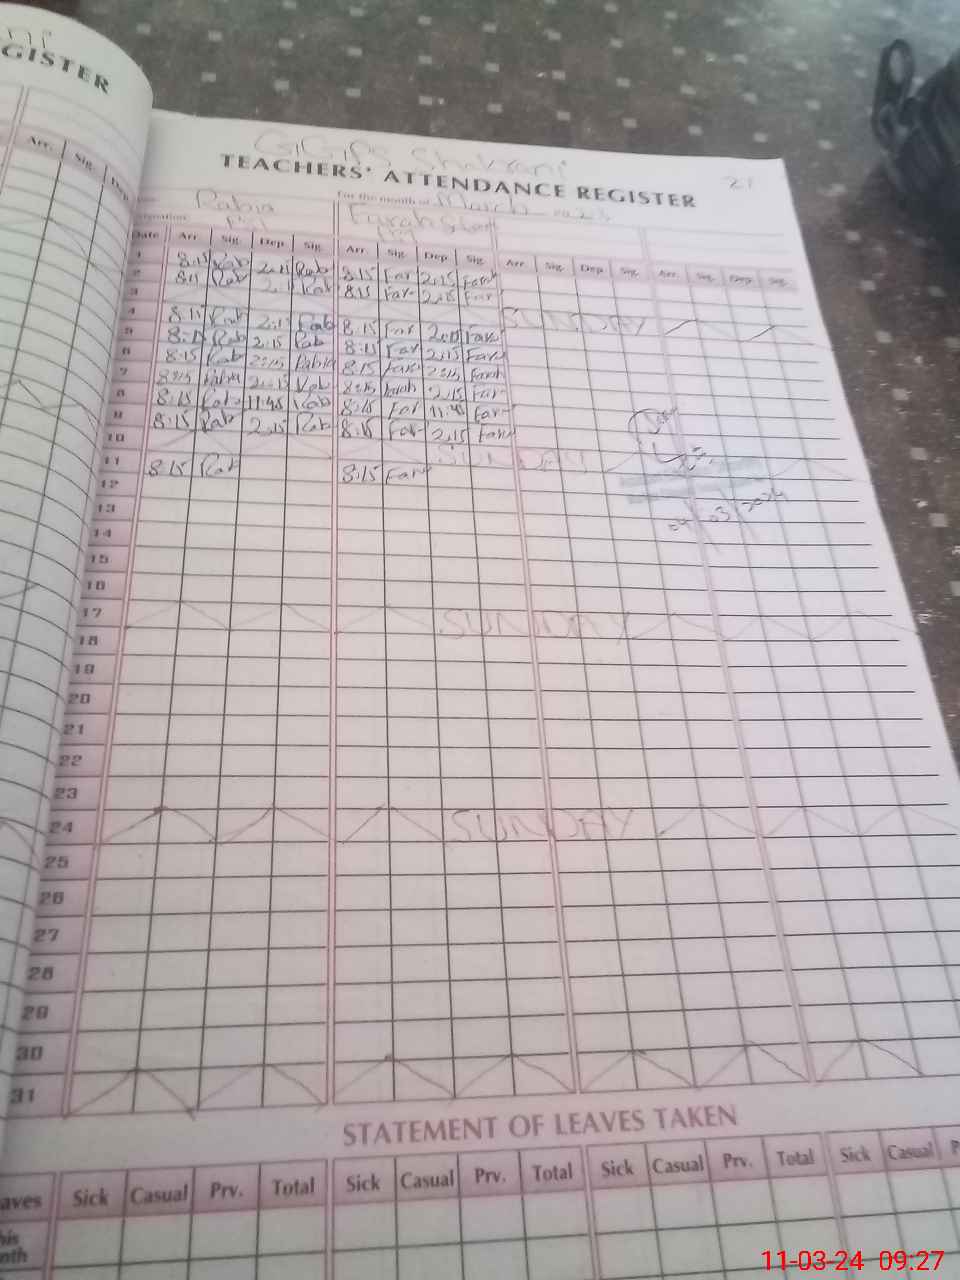 GISTER
Arr. Sig.
GGPS Shakrani
TEACHERS' ATTENDANCE REGISTER 21
For the month of March
Rabia Farah
Date Arr. Sig. Dep. Sig. Arr. Sig. Dep. Sig. Arr. Sig. Dep. Sig. Arr. Sig. Dep. Sig.
1 8:15 Rab 2:15 Rab 8:15 Far 2:15 Farah
2 8:15 Rab Rab 8:15 Far 2:15 Far
3 SUNDAY
4 8:15 Rab 2:15 Rab 8:15 Far 2:15 Far
5 8:15 Rab 2:15 Rab 8:15 Far 2:15 Far
6 8:15 Rab 2:15 Rabia 8:15 Farah 2:15 Farah
7 8:15 Rabia 2:15 Rab 8:15 Farah 2:15 Far
8 8:15 Rab 11:45 Rab 8:15 Far 11:45 Far
9 8:15 Rab 2:15 Rab 8:15 Far 2:15 Farah
10 SUNDAY
11 8:15 Rab 8:15 Farah
12
04/03/2024
13
14
15
16
17 SUNDAY
18
19
20
21
22
23
24 SUNDAY
25
26
27
28
29
30
31
STATEMENT OF LEAVES TAKEN
aves Sick Casual Prv. Total Sick Casual Prv. Total Sick Casual Prv. Total Sick Casual P
his
nth
11-03-24 09:27